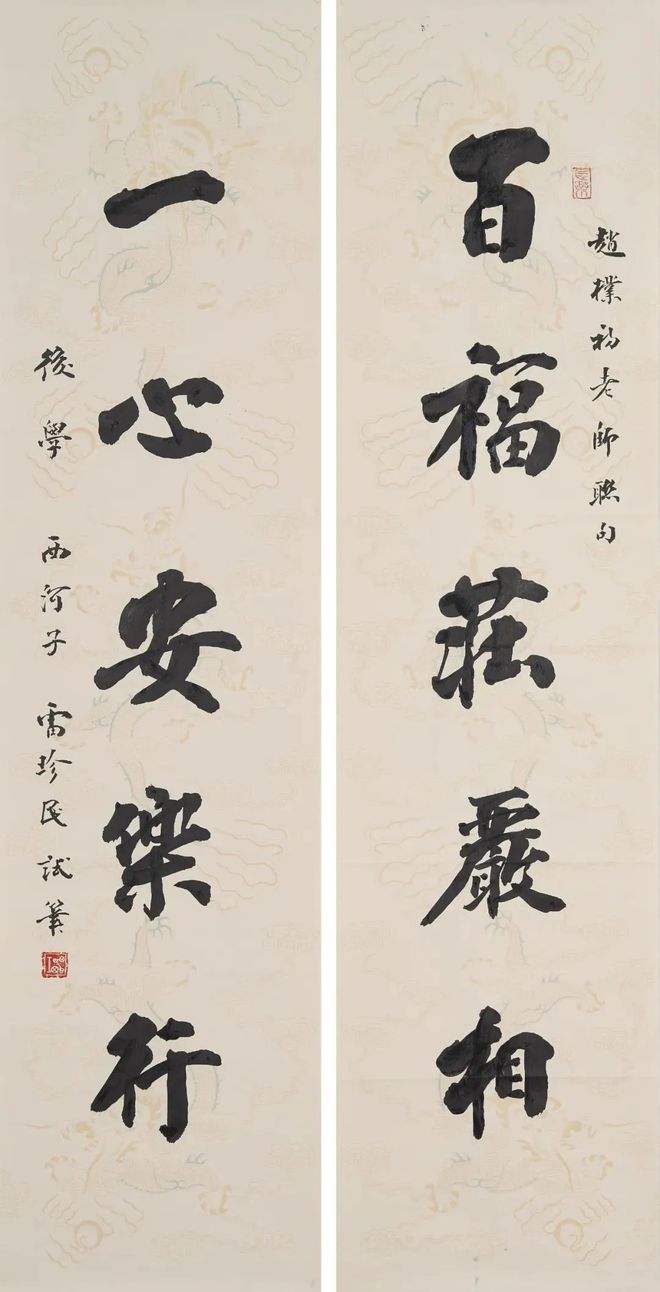 百福莊嚴相
趙樸初老師聯句
一心安樂行
後學 西河子 雷珍民 試筆